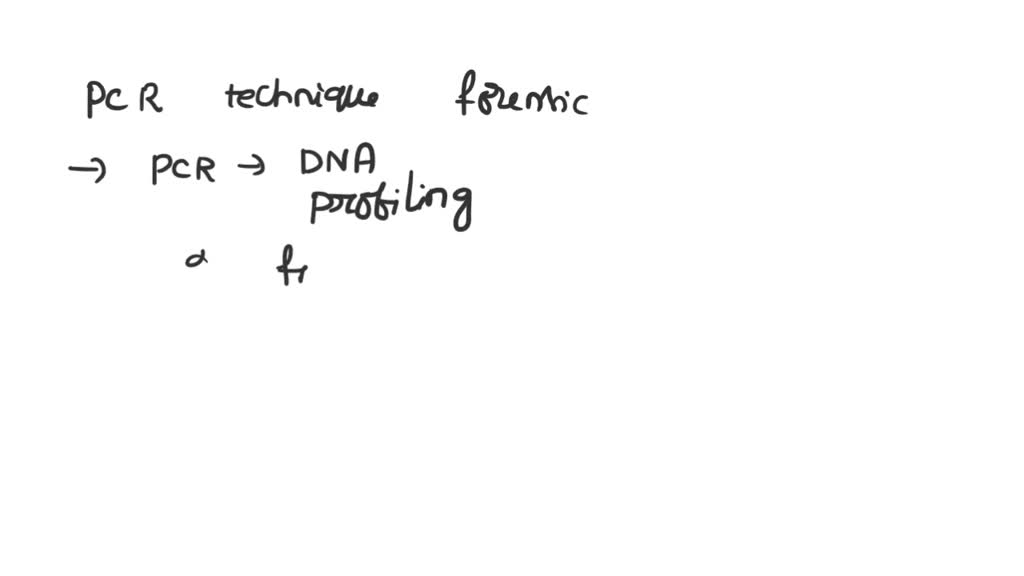 PCR technique forensic
→ PCR → DNA
profiling